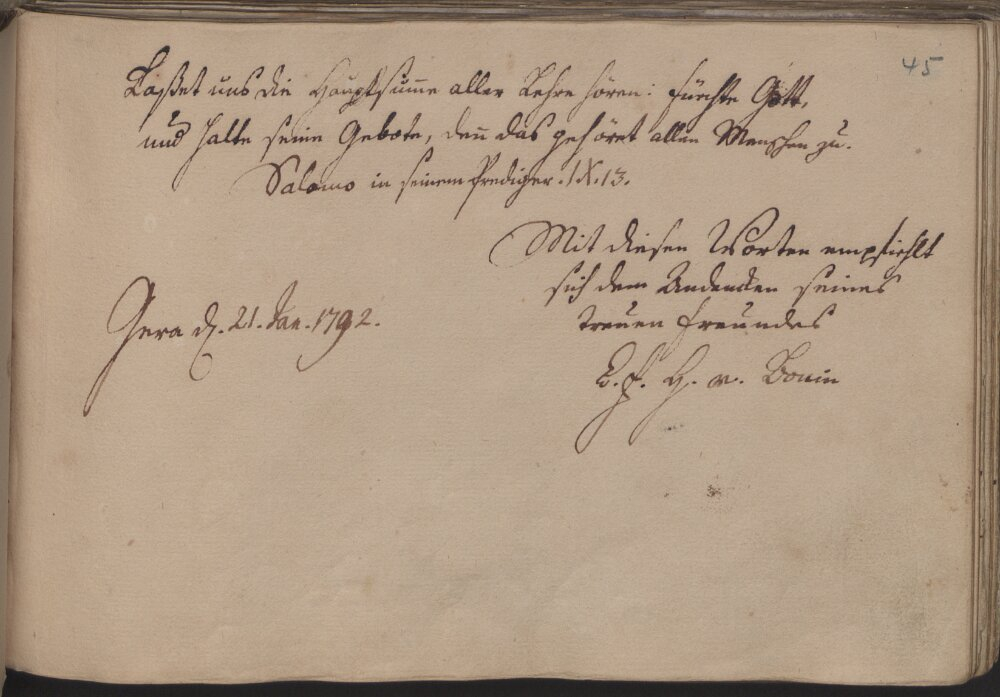 45
Laßet uns die Hauptsum̅e aller Lehre hören: fürchte Gott,
und halte seine Gebote, den̅ das gehöret allen Menschen zu.
Salomo in seinem Prediger. IX. 13.
Mit diesen Worten empfiehlt
sich dem Andencken seines
treuen Freundes
Gera d. 21. Jan. 1792.
H. v. Bonin